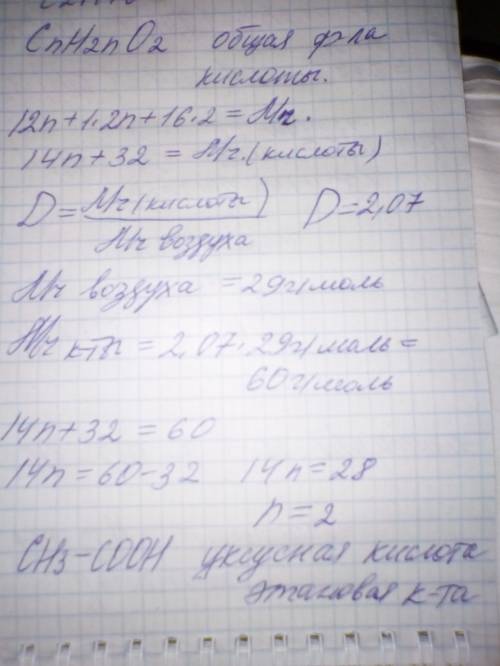 CnH2nO2 общая ф-ла
кислоты.
12n+1·2n+16·2=Mr.
14n+32 = Mr.(кислоты)
D = Mr(кислоты) D=2,07
Mr воздуха
Mr воздуха = 29г/моль
Mr к-ты = 2,07·29г/моль =
60г/моль
14n+32 = 60
14n = 60-32 14n=28
n=2
CH3-COOH уксусная кислота
этановая к-та